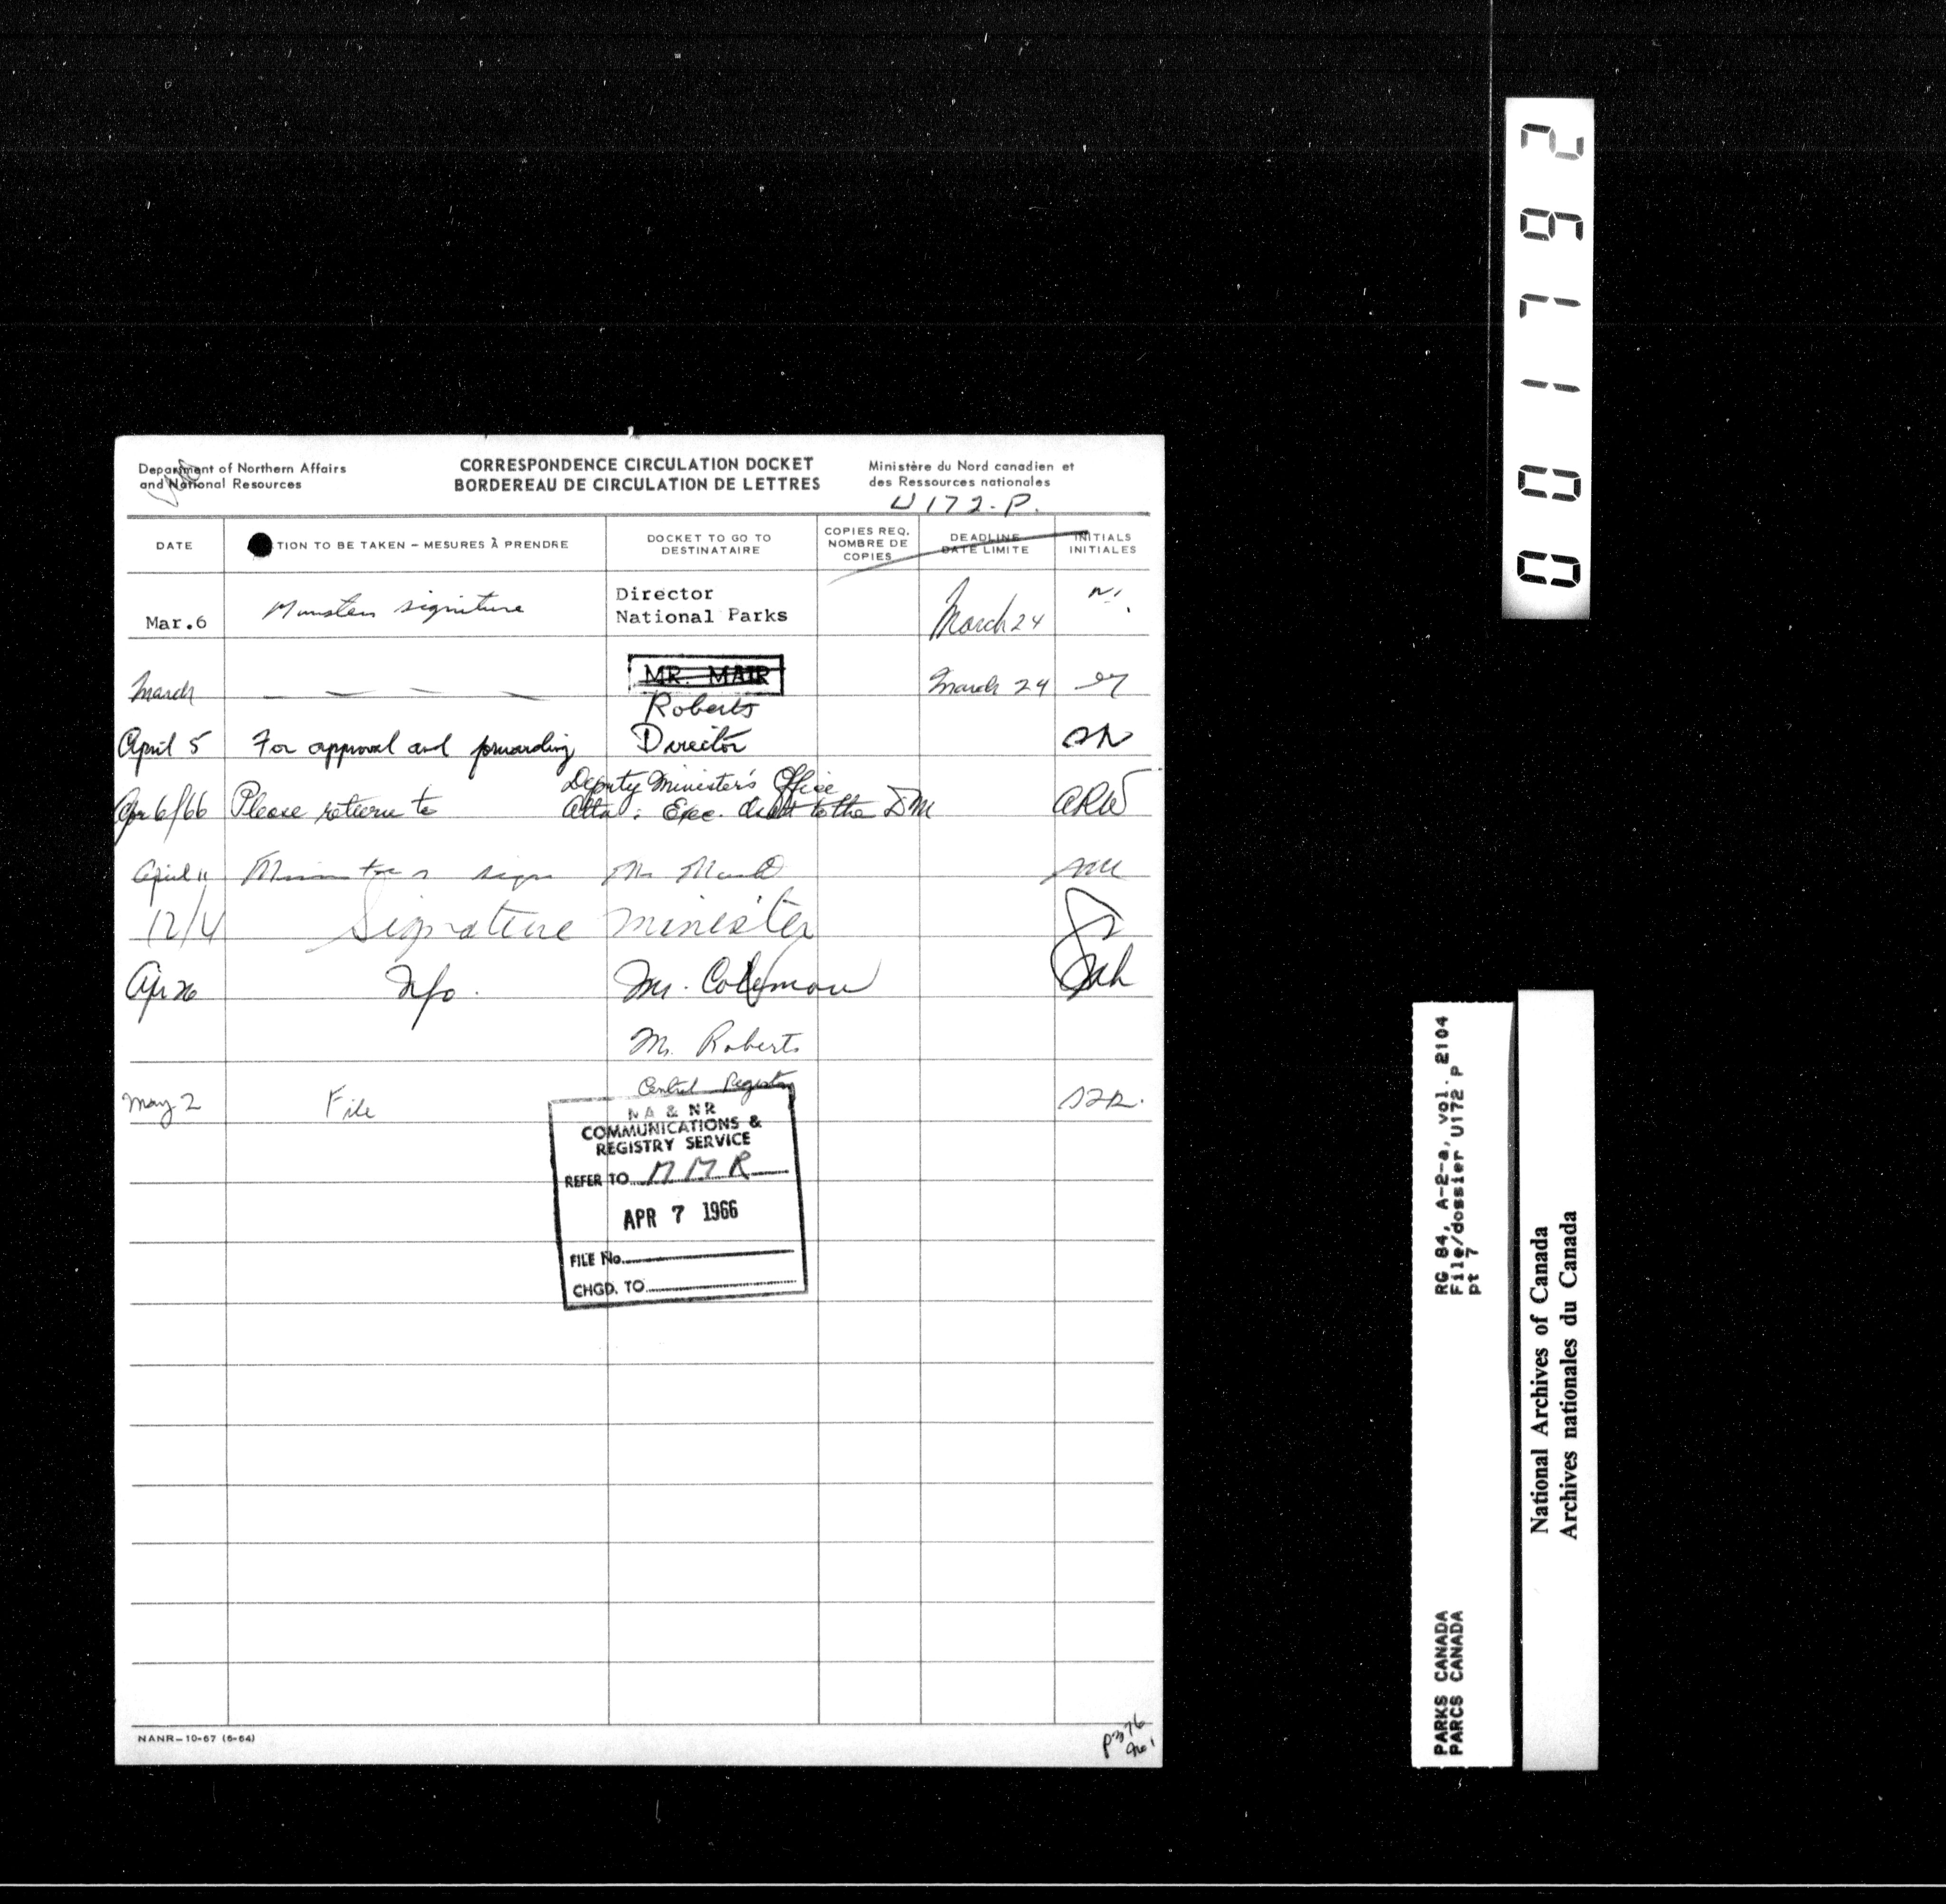 Department of Northern Affairs
and National Resources
CORRESPONDENCE CIRCULATION DOCKET
BORDEREAU DE CIRCULATION DE LETTRES
Ministère du Nord canadien et
des Ressources nationales
U172-P.
DATE
TION TO BE TAKEN – MESURES À PRENDRE
DOCKET TO GO TO
DESTINATAIRE
COPIES REQ.
NOMBRE DE
COPIES
DEADLINE
DATE LIMITE
INITIALS
INITIALES
Mar.6 signiture Director
National Parks March 24
March MR. MAIR March 24
Roberts
April 5 For approval and forwarding Director
Deputy Minister's Office
Apr 6/66 Please return to Exec. to the DM ARW
April 11 sign Mr
12/4 Signature Minister
Apr 26 Info. Mr. Coleman
Mr. Roberts
Central Registry
May 2 File
NA & NR
COMMUNICATIONS &
REGISTRY SERVICE
REFER TO
APR 7 1966
FILE No.
CHGD. TO
NANR–10-67 (6-64)
001792
RG 84, A-2-a, vol. 2104
File/dossier U172 P
pt 7
PARKS CANADA
PARCS CANADA
National Archives of Canada
Archives nationales du Canada